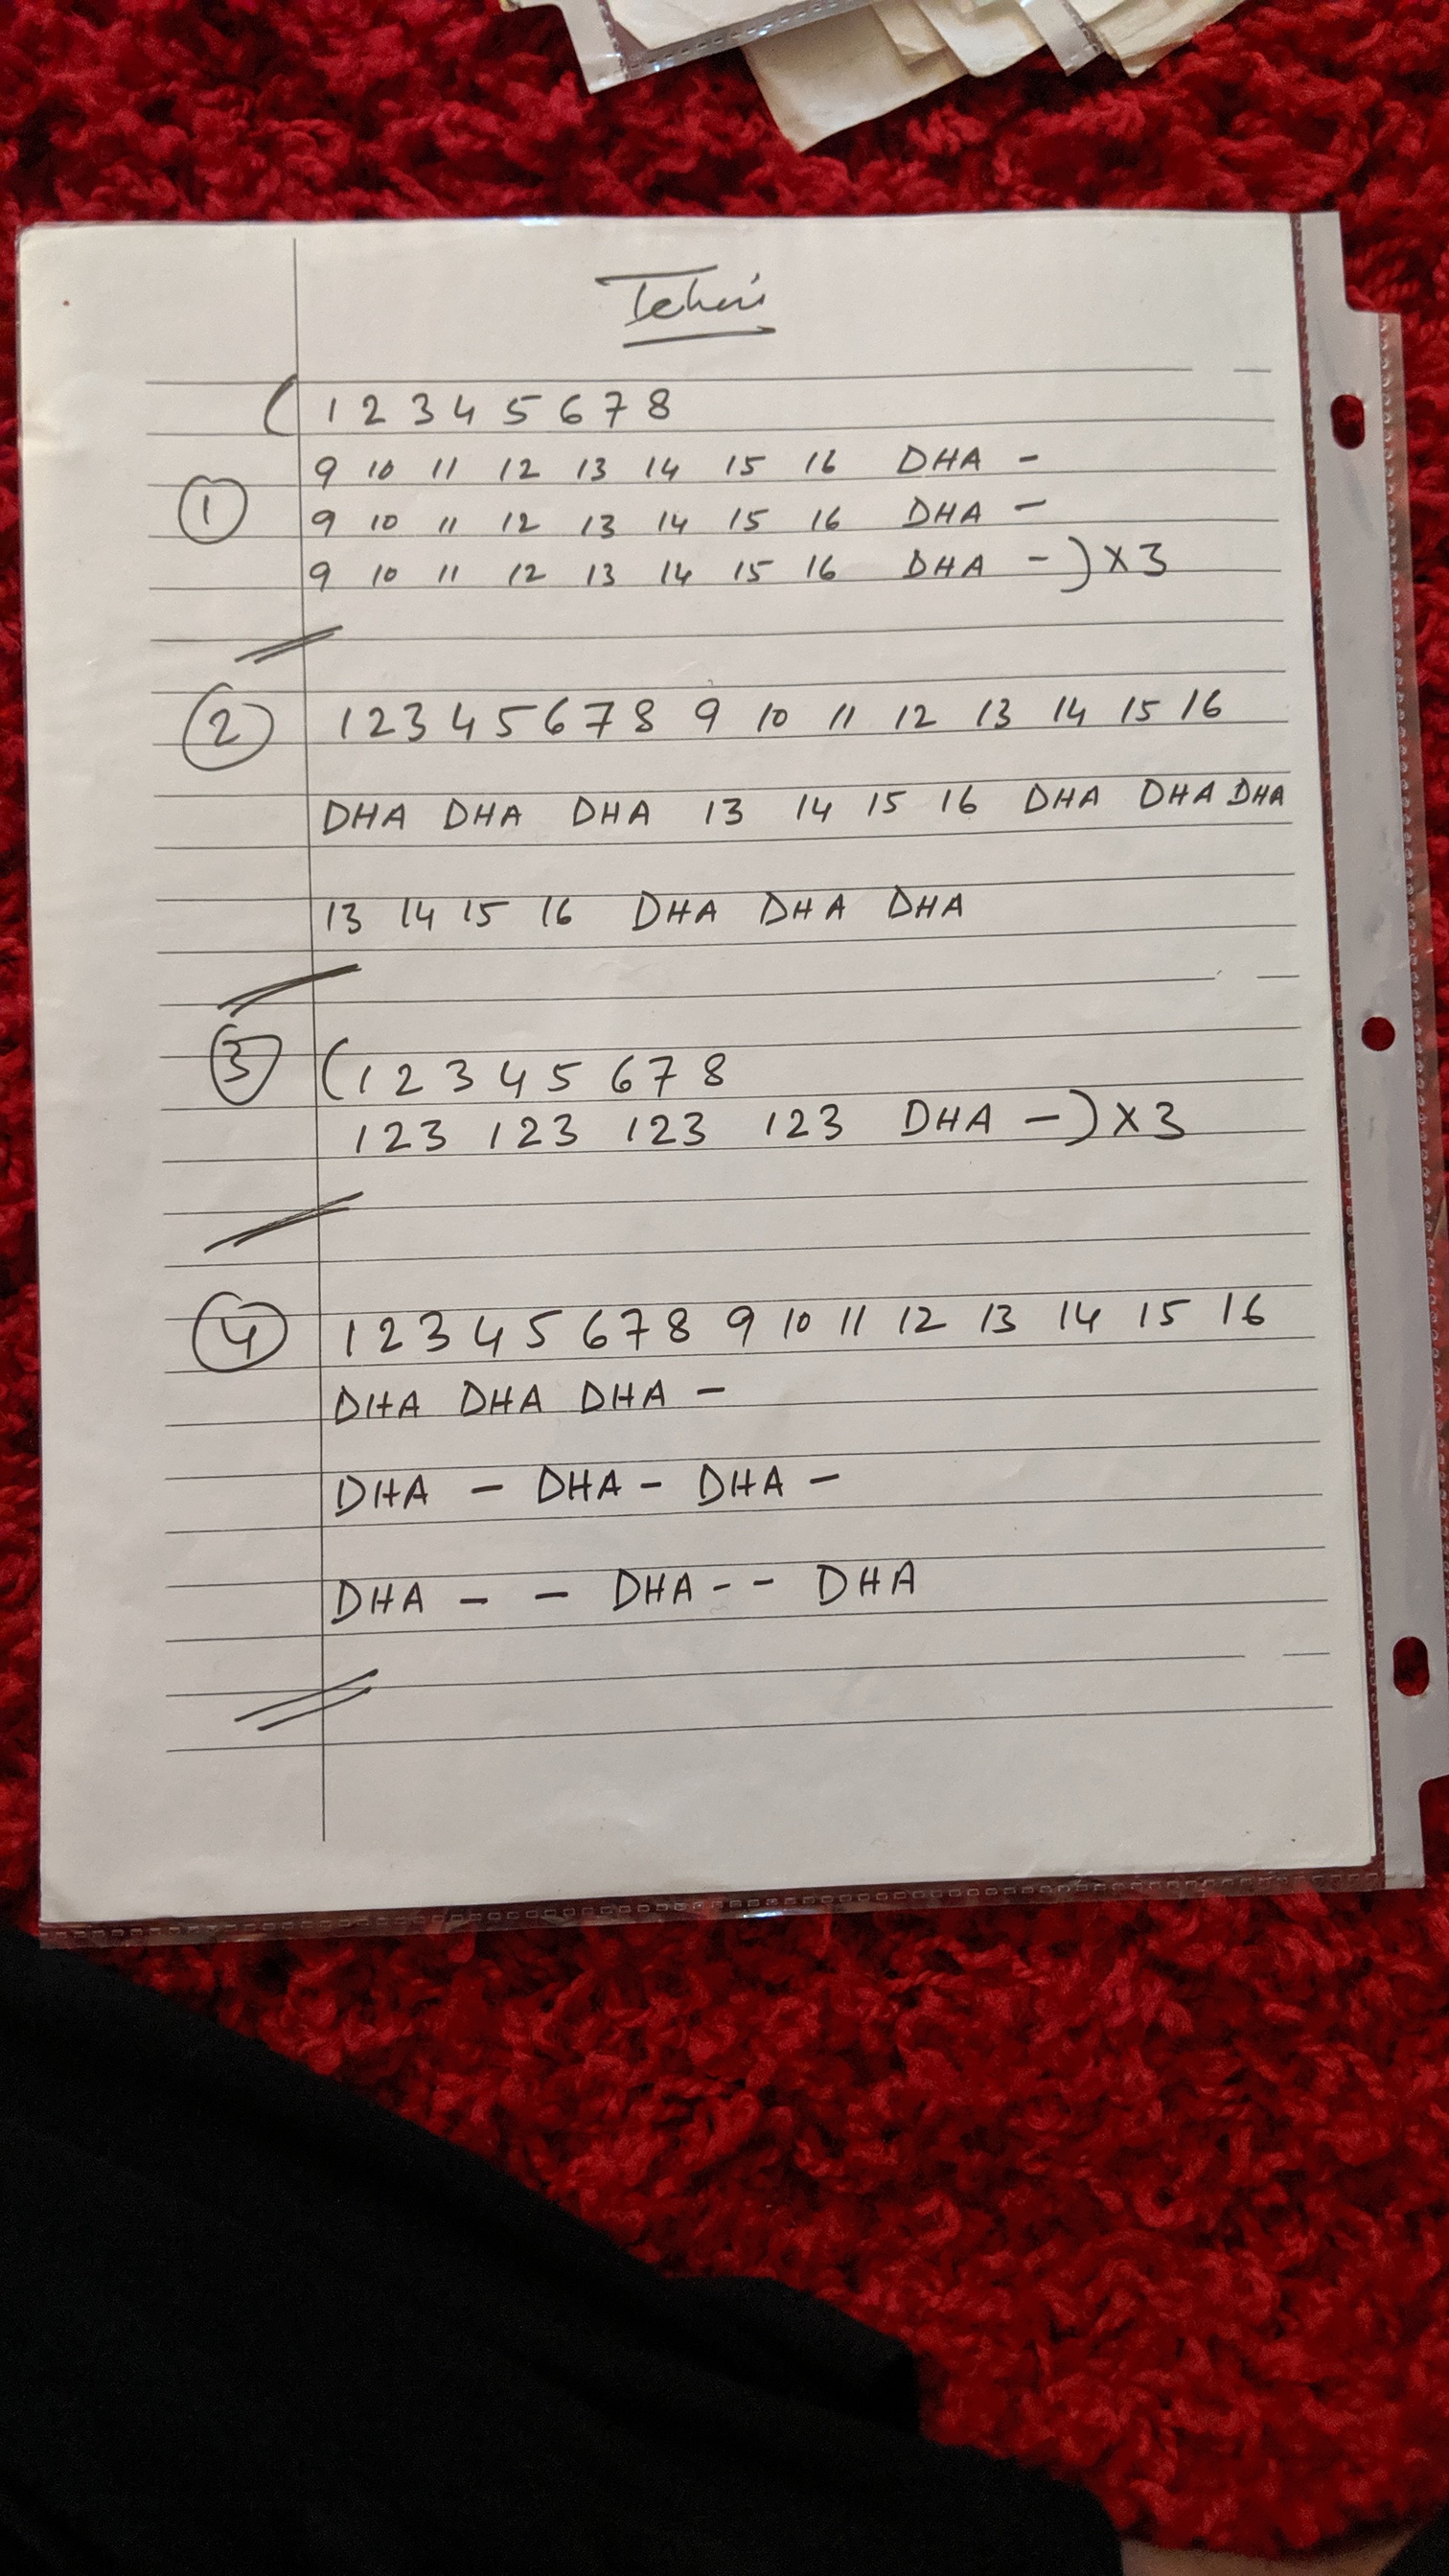 Tehai
( 1 2 3 4 5 6 7 8
9 10 11 12 13 14 15 16 DHA -
① 9 10 11 12 13 14 15 16 DHA -
9 10 11 12 13 14 15 16 DHA - ) x 3
② 1 2 3 4 5 6 7 8 9 10 11 12 13 14 15 16
DHA DHA DHA 13 14 15 16 DHA DHA DHA
13 14 15 16 DHA DHA DHA
③ ( 1 2 3 4 5 6 7 8
123 123 123 123 DHA - ) x 3
④ 1 2 3 4 5 6 7 8 9 10 11 12 13 14 15 16
DHA DHA DHA -
DHA - DHA - DHA -
DHA - - DHA - - DHA